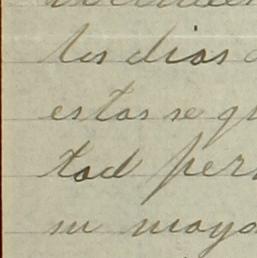 los dias
estas se qu
tad per
su mayo